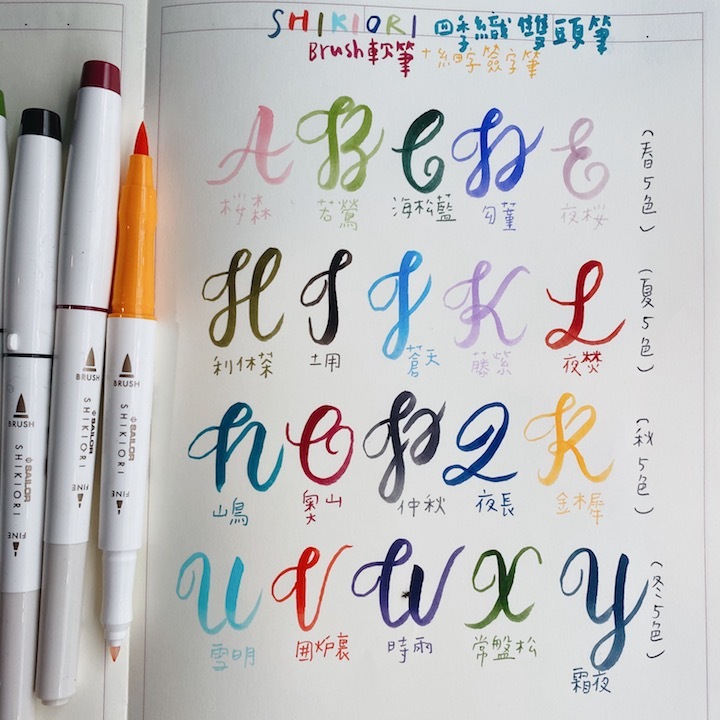 SHIKIORI 四季織雙頭筆
Brush軟筆+細字簽字筆
A B C D E
桜森 若鶯 海松藍 匂菫 夜桜
(春5色)
H I J K L
利休茶 土用 蒼天 藤紫 夜焚
(夏5色)
N O P Q R
山鳥 奥山 仲秋 夜長 金木犀
(秋5色)
U V W X Y
雪明 囲炉裏 時雨 常盤松 霜夜
(冬5色)
BRUSH
SAILOR
SHIKIORI
FINE
BRUSH
SAILOR
SHIKIORI
FINE
BRUSH
SAILOR
SHIKIORI
FINE